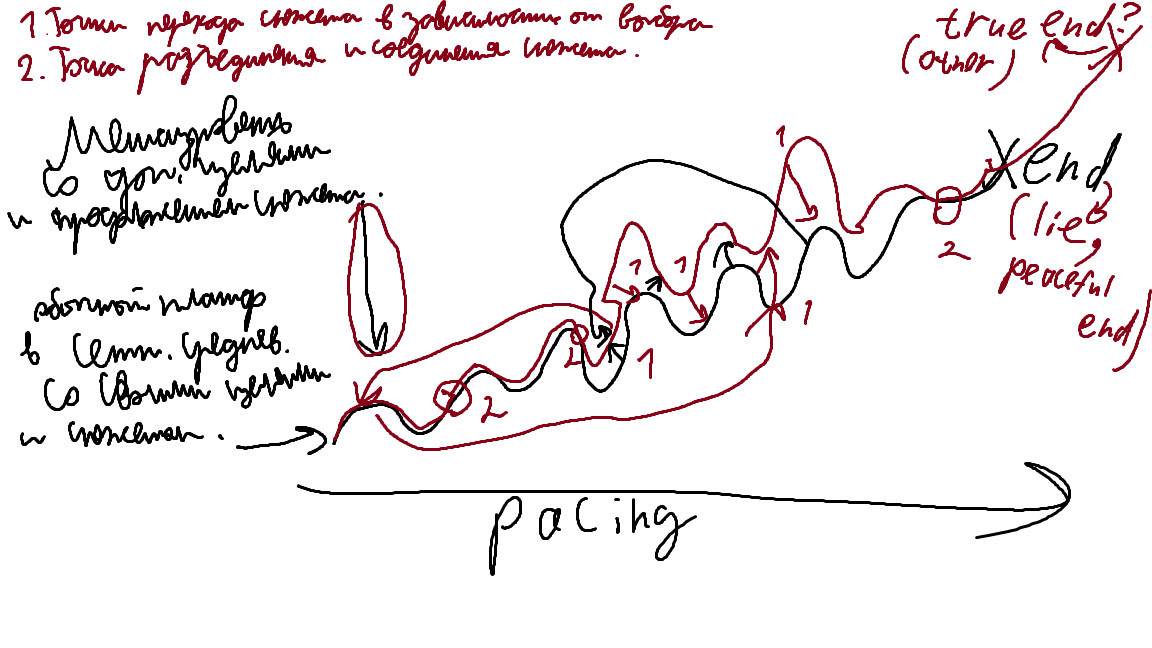 1. Точки перехода сюжета в зависимости от выбора
2. Точка разъединения и соединения сюжета.
true end?
(other)
Метауровень
со доп. целями
и продолжением сюжета.
обычный платф
в сетт. среднев.
со своими целями
и сюжетом.
1
1
1
1
1
2
2
2
X end
(lie,
peaceful
end)
pacing